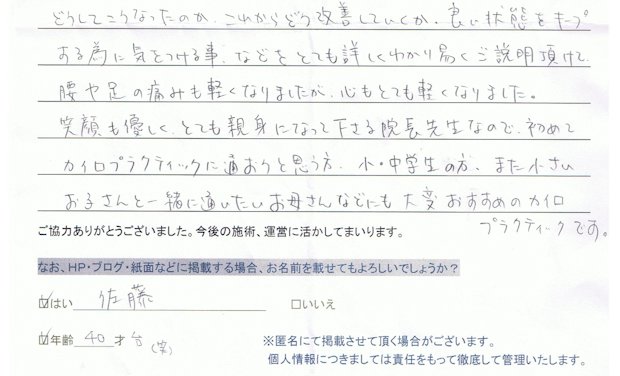 どうしてこうなったのか、これからどう改善していくか、良い状態をキープ
する為に気をつける事、などをとても詳しくわかり易くご説明頂けて、
腰や足の痛みも軽くなりましたが、心もとても軽くなりました。
笑顔も優しく、とても親身になって下さる院長先生なので、初めて
カイロプラクティックに通おうと思う方、小・中学生の方、また小さい
お子さんと一緒に通いたいお母さんなどにも大変おすすめのカイロ
プラクティックです。
ご協力ありがとうございました。今後の施術、運営に活かしてまいります。
なお、HP・ブログ・紙面などに掲載する場合、お名前を載せてもよろしいでしょうか?
☑はい 佐藤 □いいえ
☑年齢 40才台(笑) ※匿名にて掲載させて頂く場合がございます。
個人情報につきましては責任をもって徹底して管理いたします。